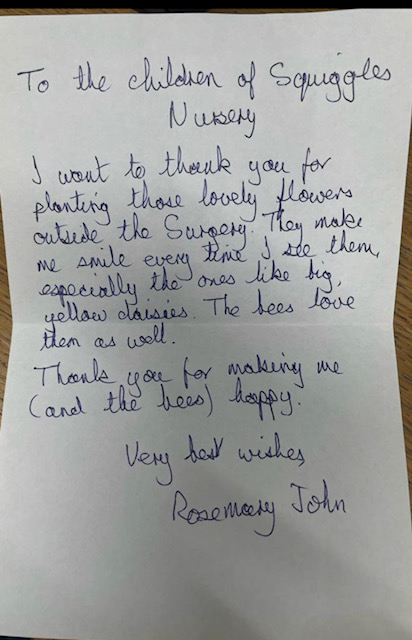 To the children of Squiggles
Nursery
I want to thank you for
planting those lovely flowers
outside the Surgery. They make
me smile every time I see them,
especially the ones like big,
yellow daisies. The bees love
them as well.
Thank you for making me
(and the bees) happy.
Very best wishes
Rosemary John